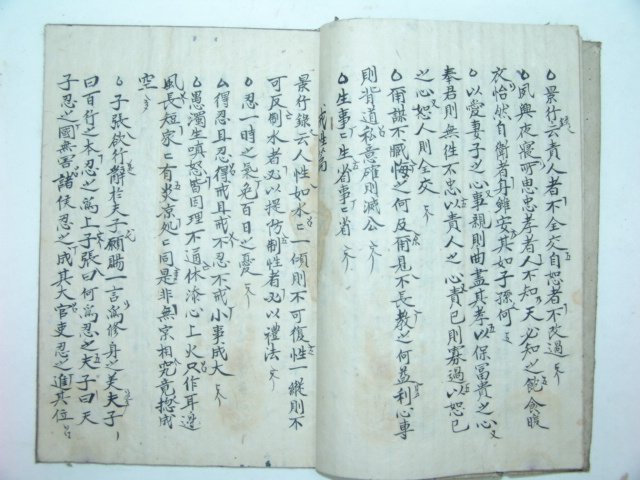 ○景行錄云責人者不全交自恕者不改過
○夙興夜寐所思忠孝者人不知天必知之飽食煖
衣怡然自衛者身雖安其如子孫何
○以愛妻子之心事親則曲盡其孝以保冨貴之心
奉君則無往不忠以責人之心責己則寡過以恕己
之心恕人則全交
○爾謀不臧悔之何及爾見不長教之何益利心專
則背道私意確則滅公
○生事〻生省事〻省
戒性篇
景行錄云人性如水〻一傾則不可復性一縱則不
可反制水者必以提防制性者必以禮法
○忍一時之氣免百日之憂
○得忍且忍得戒且戒不忍不戒小事成大
○愚濁生嗔怒皆因理不通休添心上火只作耳邊
風長短家〻有炎凉処〻同是非無宗相究竟摠成
空
○子張欲行辭於夫子願賜一言爲修身之美夫子
曰百行之本忍之爲上子張曰何爲忍之夫子曰天
子忍之國無害諸侯忍之成其大官吏忍之進其位